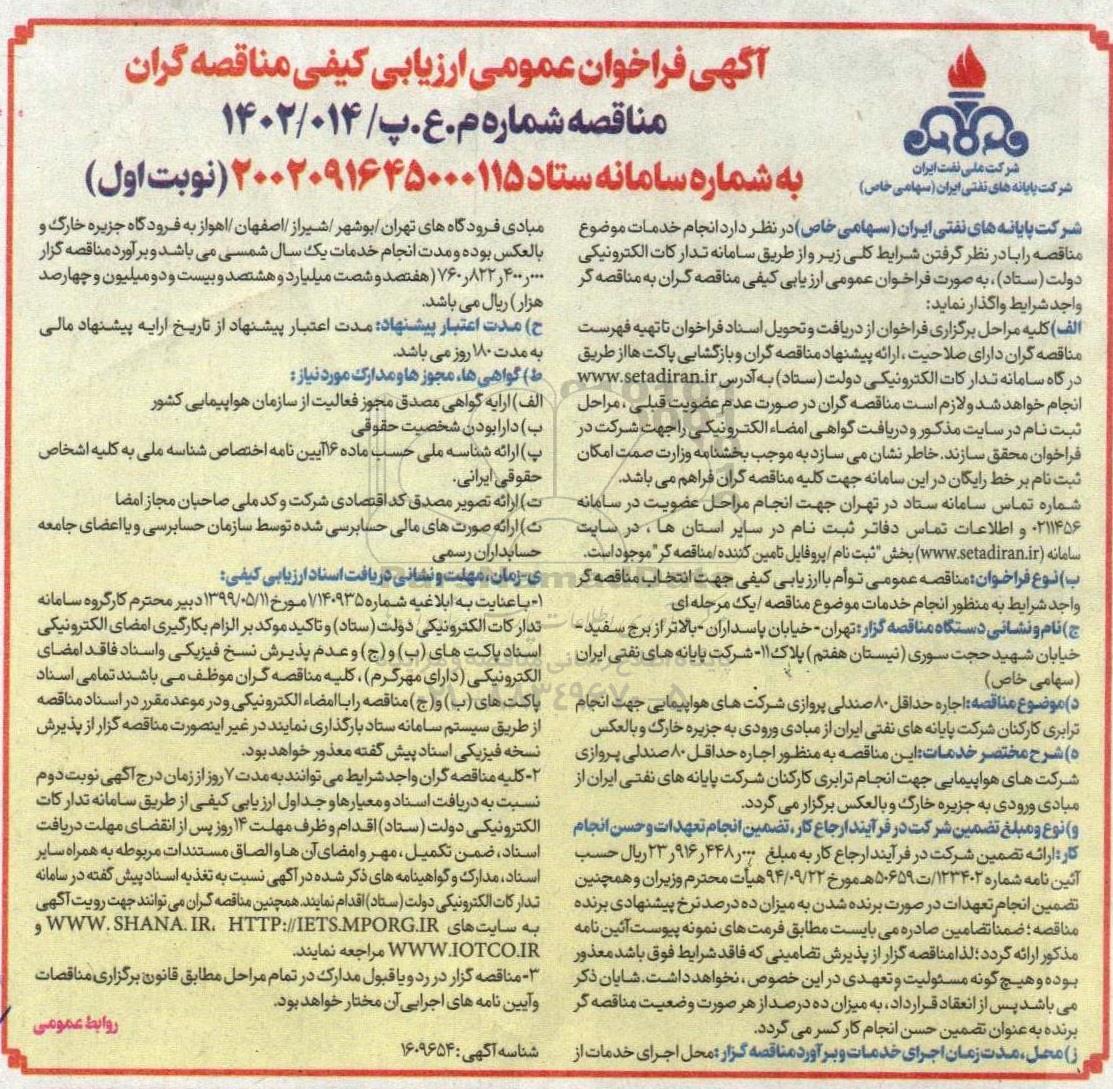 آگهی فراخوان عمومی ارزیابی کیفی مناقصه گران
مناقصه شماره م.ع.پ/ ۱۴۰۲/۰۱۴
به شماره سامانه ستاد ۲۰۰۲۰۹۱۶۴۵۰۰۰۱۱۵ (نوبت اول)
شرکت ملی نفت ایران
شرکت پایانه های نفتی ایران (سهامی خاص)
شرکت پایانه های نفتی ایران (سهامی خاص) در نظر دارد انجام خدمات موضوع
مناقصه را با در نظر گرفتن شرایط کلی زیر و از طریق سامانه تدارکات الکترونیکی
دولت (ستاد)، به صورت فراخوان عمومی ارزیابی کیفی مناقصه گران به مناقصه گر
واجد شرایط واگذار نماید:
الف) کلیه مراحل برگزاری فراخوان از دریافت و تحویل اسناد فراخوان تا تهیه فهرست
مناقصه گران دارای صلاحیت، ارائه پیشنهاد مناقصه گران و بازگشایی پاکت ها از طریق
درگاه سامانه تدارکات الکترونیکی دولت (ستاد) به آدرس www.setadiran.ir
انجام خواهد شد و لازم است مناقصه گران در صورت عدم عضویت قبلی، مراحل
ثبت نام در سایت مذکور و دریافت گواهی امضاء الکترونیکی را جهت شرکت در
فراخوان محقق سازند. خاطر نشان می سازد به موجب بخشنامه وزارت صمت امکان
ثبت نام بر خط رایگان در این سامانه جهت کلیه مناقصه گران فراهم می باشد.
شماره تماس سامانه ستاد در تهران جهت انجام مراحل عضویت در سامانه
۰۲۱۱۴۵۶ و اطلاعات تماس دفاتر ثبت نام در سایر استان ها، در سایت
سامانه (www.setadiran.ir) بخش "ثبت نام/پروفایل تامین کننده/مناقصه گر" موجود است.
ب) نوع فراخوان: مناقصه عمومی توأم با ارزیابی کیفی جهت انتخاب مناقصه گر
واجد شرایط به منظور انجام خدمات موضوع مناقصه / یک مرحله ای
ج) نام و نشانی دستگاه مناقصه گزار: تهران - خیابان پاسداران - بالاتر از برج سفید -
خیابان شهید حجت سوری (نیستان هفتم) پلاک ۱۱- شرکت پایانه های نفتی ایران
(سهامی خاص)
د) موضوع مناقصه: اجاره حداقل ۸۰ صندلی پروازی شرکت های هواپیمایی جهت انجام
ترابری کارکنان شرکت پایانه های نفتی ایران از مبادی ورودی به جزیره خارگ و بالعکس
ه) شرح مختصر خدمات: این مناقصه به منظور اجاره حداقل ۸۰ صندلی پروازی
شرکت های هواپیمایی جهت انجام ترابری کارکنان شرکت پایانه های نفتی ایران از
مبادی ورودی به جزیره خارگ و بالعکس برگزار می گردد.
و) نوع و مبلغ تضمین شرکت در فرآیند ارجاع کار، تضمین انجام تعهدات و حسن انجام
کار: ارائه تضمین شرکت در فرآیند ارجاع کار به مبلغ ۲۳٫۹۱۶٫۴۴۸٫۰۰۰ ریال حسب
آئین نامه شماره ۱۲۳۴۰۲/ت۵۰۶۵۹هـ مورخ ۹۴/۰۹/۲۲ هیأت محترم وزیران و همچنین
تضمین انجام تعهدات در صورت برنده شدن به میزان ده درصد نرخ پیشنهادی برنده
مناقصه؛ ضمنا تضامین صادره می بایست مطابق فرمت های نمونه پیوست آئین نامه
مذکور ارائه گردد؛ لذا مناقصه گزار از پذیرش تضامینی که فاقد شرایط فوق باشد معذور
بوده و هیچ گونه مسئولیت و تعهدی در این خصوص، نخواهد داشت. شایان ذکر
می باشد پس از انعقاد قرارداد، به میزان ده درصد از هر صورت وضعیت مناقصه گر
برنده به عنوان تضمین حسن انجام کار کسر می گردد.
ز) محل، مدت زمان اجرای خدمات و برآورد مناقصه گزار: محل اجرای خدمات از
مبادی فرودگاه های تهران/بوشهر/شیراز/اصفهان/اهواز به فرودگاه جزیره خارگ و
بالعکس بوده و مدت انجام خدمات یک سال شمسی می باشد و برآورد مناقصه گزار
۷۶۰٫۸۲۲٫۴۰۰٫۰۰۰ (هفتصد و شصت میلیارد و هشتصد و بیست و دو میلیون و چهارصد
هزار) ریال می باشد.
ح) مدت اعتبار پیشنهاد: مدت اعتبار پیشنهاد از تاریخ ارایه پیشنهاد مالی
به مدت ۱۸۰ روز می باشد.
ط) گواهی ها، مجوزها و مدارک مورد نیاز:
الف) ارایه گواهی مصدق مجوز فعالیت از سازمان هواپیمایی کشور
ب) دارا بودن شخصیت حقوقی
پ) ارائه شناسه ملی حسب ماده ۱۶ آیین نامه اختصاص شناسه ملی به کلیه اشخاص
حقوقی ایرانی.
ت) ارائه تصویر مصدق کد اقتصادی شرکت و کد ملی صاحبان مجاز امضا
ث) ارائه صورت های مالی حسابرسی شده توسط سازمان حسابرسی و یا اعضای جامعه
حسابداران رسمی
ی- زمان، مهلت و نشانی دریافت اسناد ارزیابی کیفی:
۱- با عنایت به ابلاغیه شماره ۱/۱۴۰۹۳۵ مورخ ۱۳۹۹/۰۵/۱۱ دبیر محترم کارگروه سامانه
تدارکات الکترونیکی دولت (ستاد) و تاکید موکد بر الزام بکارگیری امضای الکترونیکی
اسناد پاکت های (ب) و (ج) و عدم پذیرش نسخ فیزیکی و اسناد فاقد امضای
الکترونیکی (دارای مهر گرم)، کلیه مناقصه گران موظف می باشند تمامی اسناد
پاکت های (ب) و (ج) مناقصه را با امضاء الکترونیکی و در موعد مقرر در اسناد مناقصه
از طریق سیستم سامانه ستاد بارگذاری نمایند در غیر اینصورت مناقصه گزار از پذیرش
نسخه فیزیکی اسناد پیش گفته معذور خواهد بود.
۲- کلیه مناقصه گران واجد شرایط می توانند به مدت ۷ روز از زمان درج آگهی نوبت دوم
نسبت به دریافت اسناد و معیارها و جداول ارزیابی کیفی از طریق سامانه تدارکات
الکترونیکی دولت (ستاد) اقدام و ظرف مهلت ۱۴ روز پس از انقضای مهلت دریافت
اسناد، ضمن تکمیل، مهر و امضای آن ها و الصاق مستندات مربوطه به همراه سایر
اسناد، مدارک و گواهینامه های ذکر شده در آگهی نسبت به تغذیه اسناد پیش گفته در سامانه
تدارکات الکترونیکی دولت (ستاد) اقدام نمایند. همچنین مناقصه گران می توانند جهت رویت آگهی
به سایت های WWW.SHANA.IR، HTTP://IETS.MPORG.IR و
WWW.IOTCO.IR مراجعه نمایند.
۳- مناقصه گزار در رد و یا قبول مدارک در تمام مراحل مطابق قانون برگزاری مناقصات
و آیین نامه های اجرایی آن مختار خواهد بود.
روابط عمومی
شناسه آگهی: ۱۶۰۹۶۵۴